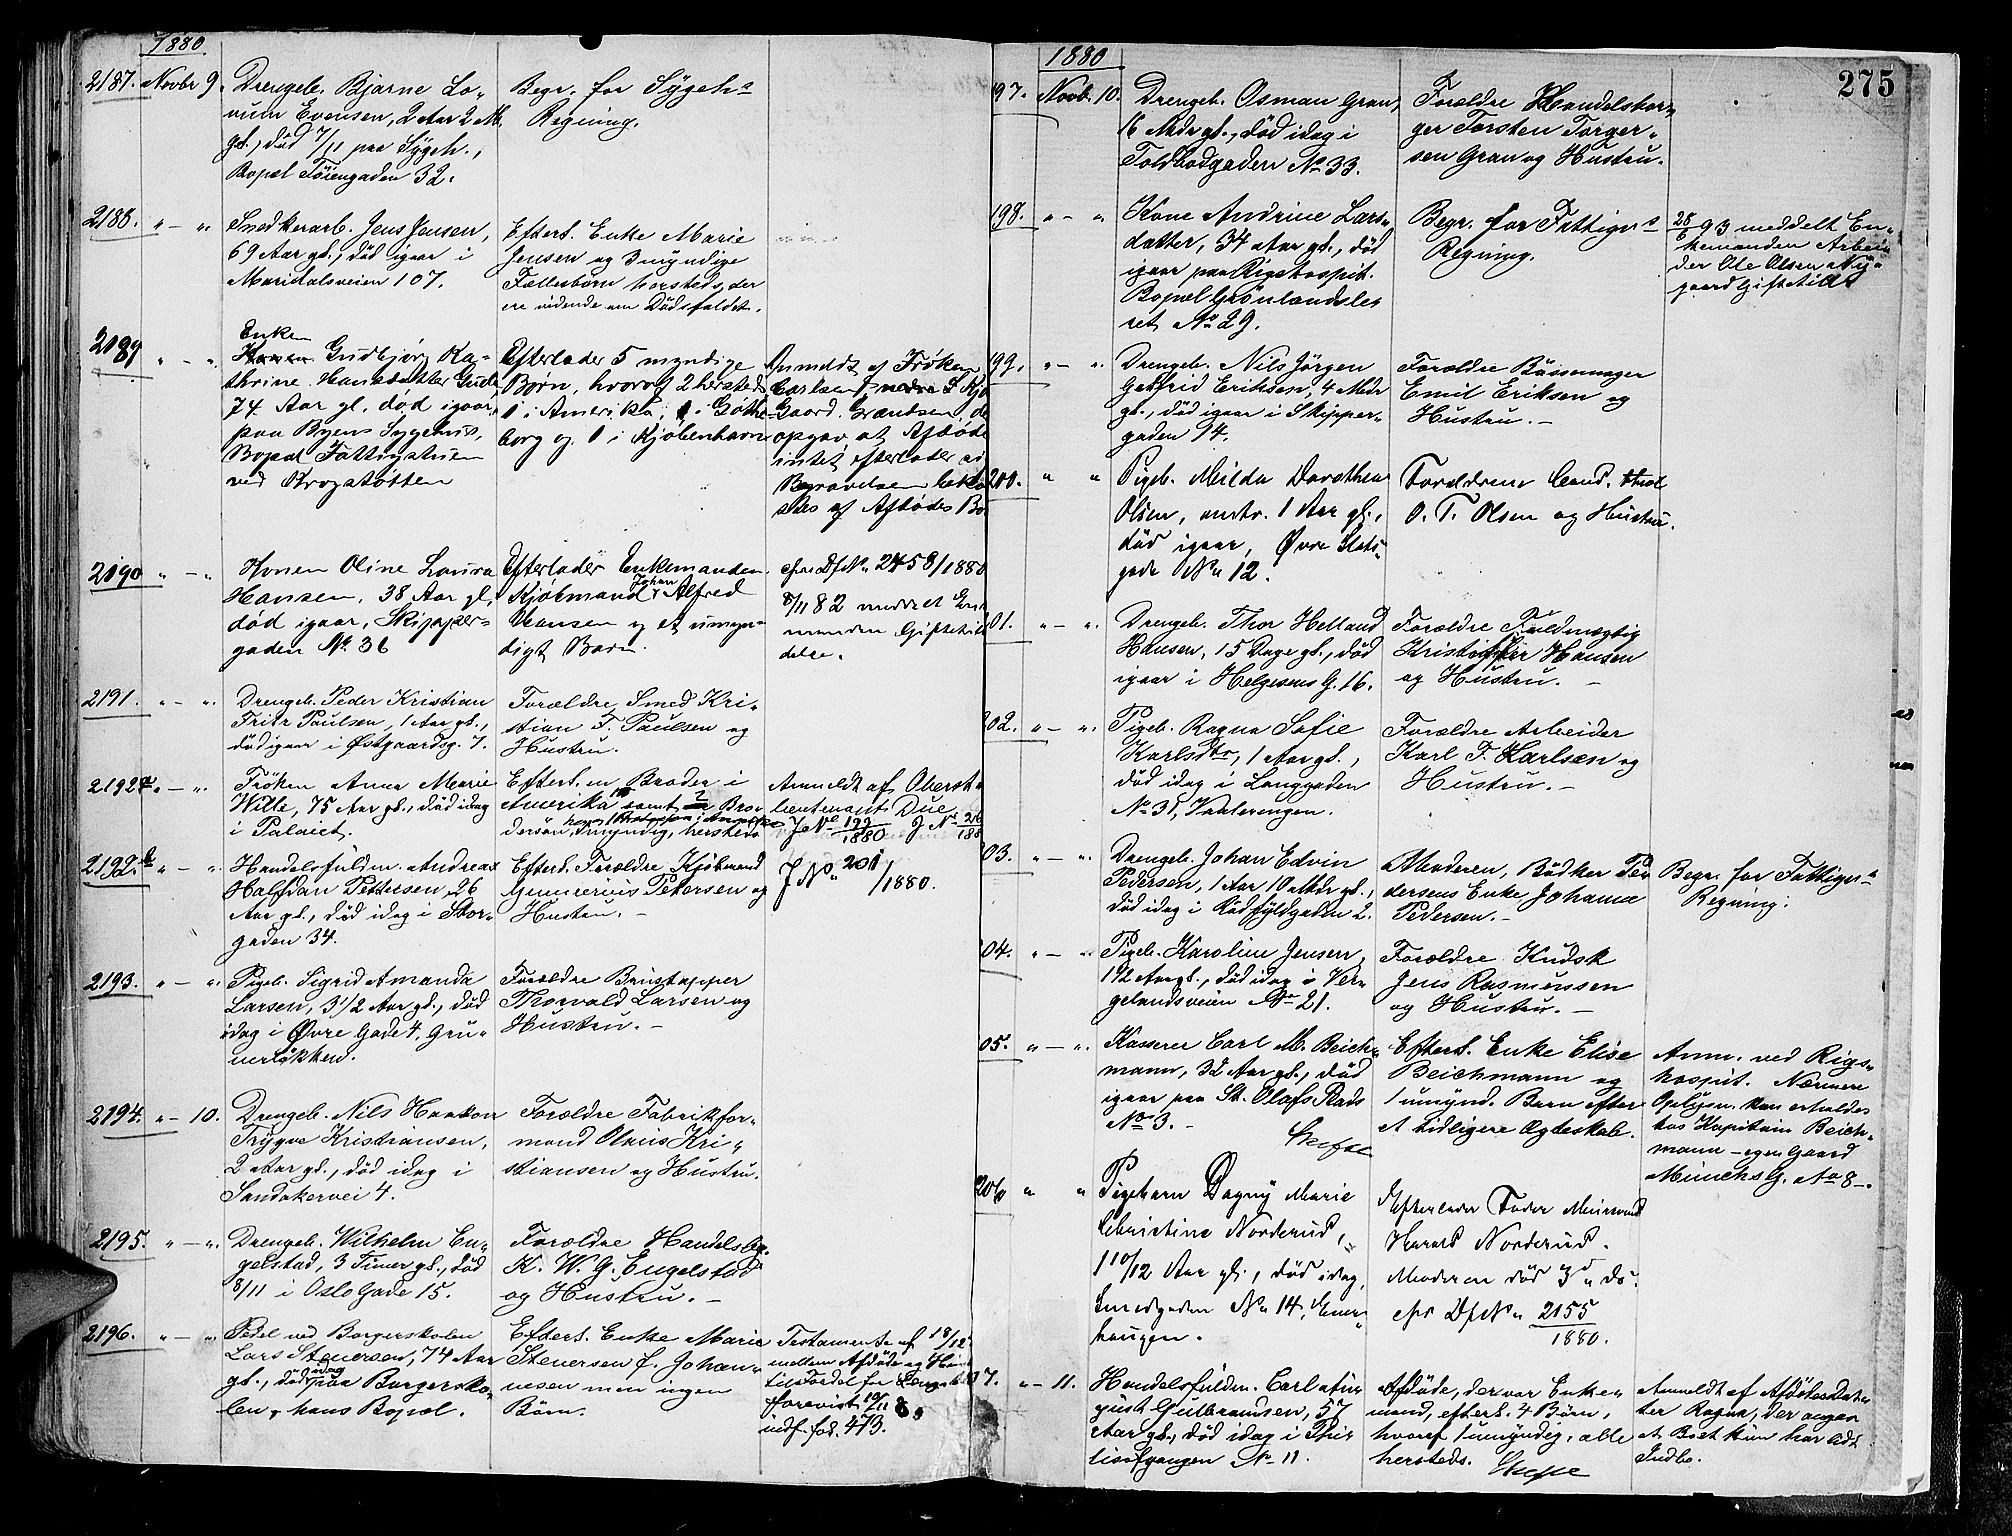 1880
2187. Novbr 9.
Drengeb. Bjarne Lo-
rum Evensen, 2 Aar 2 M.
gl., død 7/11 paa Sygeh.,
Bopæl Töiengaden 32.
Begr. for Sygehs
Regning.
2188. " — "
Snedkerarb. Jens Jensen,
69 Aar gl., død igaar i
Maridalsveien 107.
Efterl. Enke Marie
Jensen og 3 myndige
Fællesbørn hersteds, der
ere vidende om Dødsfaldet.
2189 " - "
Enken
Gudbjørg Ka-
thrine Hansdatter Gude,
74 Aar gl. død igaar,
paa Byens Sygehus,
Bopæl Fattigstuen
ved Krogstøtten
Efterlader 5 myndige
Børn, hvoraf 2 hersteds
1 i Amerika, 1 i Göthe-
borg og 1 i Kjøbenhavn
Anmeldt af Frøken
Carlsen,
Gaard. Grændsen, de
opgav, at Afdøde
intet efterlader
Begravelsen
af Afdødes Bo
2190 " - "
Konen Oline Laura
Hansen, 38 Aar gl,
død igaar, Skipper-
gaden No 36
Efterlader Enkemanden
Kjøbmand Johan Alfred
Hansen og et umyn-
digt Barn.
cfr Df No 2458/1880
8/11 82 meddelt Enke
manden Giftetilla
delse.
2191. " - "
Drengeb. Peder Kristian
Fritz Paulsen, 1 Aar gl.,
død igaar i Østgaardsg. 7.
Forældre Smed Kri-
stian F. Paulsen og
Hustru.
2192a " - "
Fröken Anna Marie
Wille, 75 Aar gl., død idag
i Palæet.
Efterl. en Broder i
Amerika samt Bro-
dersøn, myndig, hersteds
Anmeldt af Oberst-
lieutenant Due
J No 199/1880
2192.b " - "
Handelsfuldm. Andreas
Halfdan Pettersen, 26
Aar gl., død idag i Stor-
gaden 34.
Efterl. Forældre Kjöbmand
Petersen og
Hustru. —
J No 201/1880.
2193. " - "
Pigeb. Sigrid Amanda
Larsen, 3 1/2 Aar gl., død
idag i Øvre Gade 4, Grü-
nerløkken.
Forældre Brustapper
Thorvald Larsen og
Hustru. —
2194. " - 10.
Drengeb. Nils Haakon
Trygve Kristiansen,
2 Aar gl., død idag i
Sandakervei 4.
Forældre Fabrikfor-
mand Olaus Kri-
stiansen og Hustru.
2195. " - "
Drengeb. Wilhelm En-
gelstad, 3 Timer gl., død
8/11 i Oslo Gade 15.
Forældre Handelsbg.
K. W. G. Engelstad
og Hustru. —
2196. " - "
Pedel ved Borgerskolen
Lars Stenersen, 74 Aar
gl., død idag paa Borgersko-
len, hans Bopæl.
Efterl. Enke Marie
Stenersen f. Johan-
nesen men ingen
Børn.
Testamente af 18/12
mellem Afdøde og
til Fordel for Længstlev
forevist 10/11 80
indf. fol. 473.
1880
275
97. Novb. 10.
Drengeb. Osman Gran,
16 Mdr gl., død idag i
Toldbodgaden No 33.
Forældre Handelsbor-
ger Torsten Torger-
sen Gran og Hustru.
198. " — "
Kone Andrine Lars-
datter, 34 Aar gl., død
igaar paa Rigshospit.
Bopæl Grønlandsle-
ret No 29.
Begr. for Fattigv.s
Regning.
28/6 93 meddelt En-
kemanden Arbei-
der Ole Olsen Ny-
gaard Giftetill.
199. " - "
Drengeb. Nils Jörgen
Gotfrid Eriksen, 4 Mdr
gl., død igaar i Skipper-
gaden 14.
Forældre Bössemager
Emil Eriksen og
Hustru. —
200. " "
Pigeb. Milda Dorothea
Olsen, omtr. 1 Aar gl.,
død igaar, Øvre Slots-
gade No 12.
Forældrene Cand. theol
O. T. Olsen og Hustru.
01. " - "
Drengeb. Thor Helland
Hansen, 15 Dage gl., död
igaar i Helgesens G. 16.
Forældre Fuldmægtig
Kristoffer Hansen
og Hustru. —
202. " — "
Pigeb. Ragna Sofie
Karlsdtr, 1 Aar gl.,
död idag i Langgaden
No 35, Vaalerengen.
Forældre Arbeider
Karl F. Karlsen og
Hustru. —
03. " - "
Drengeb. Johan Edvin
Pedersen, 1 Aar 10 Mdr gl.,
död idag i Rødfyldgaden 2.
Moderen, Bödker Pe-
dersens Enke Johanna
Pedersen. —
Begr. for Fattigv.s
Regning.
04. " — "
Pigeb. Karoline Jensen,
1 1/2 Aar gl., død idag i Ver-
gelandsveien No 21.
Forældre Kudsk
Jens Rasmussen
og Hustru. —
05. " — "
Kasserer Carl M. Beich-
mann, 32 Aar gl., död
igaar paa St. Olafs Plads
No 3. —
Skifte
Efterl. Enke Elise
Beichmann og
1 umynd. Barn efter
et tidligere Ægteskab.
Anm. ved Rigs-
hospit. Nærmere
Oplysn. kan erholdes
hos Kapitain Beich-
mann — egen Gaard
Munchs G. No 8 —.
206 " "
Pigebarn Dagny Marie
Christine Norderud,
1 10/12 Aar gl., død idag,
Smedgaden No 14, Ener-
haugen.
Efterlader Fader Murmand
Harald Norderud.
Moderen død 3d ds.
cfr Df No 2155/1880.
7. " - 11.
Handelsfuldm. Carl Au-
gust Gulbrandsen, 57
Aar gl., död idag i Thor
No 11.
Afdøde, der var Enke-
mand, efterl. 4 Børn,
hvoraf 1 umyndig, alle
hersteds. Skifte
Anmeldt af Afdødes Dat-
ter Ragna, der angav
at Boet kun har lidt
Indbo.